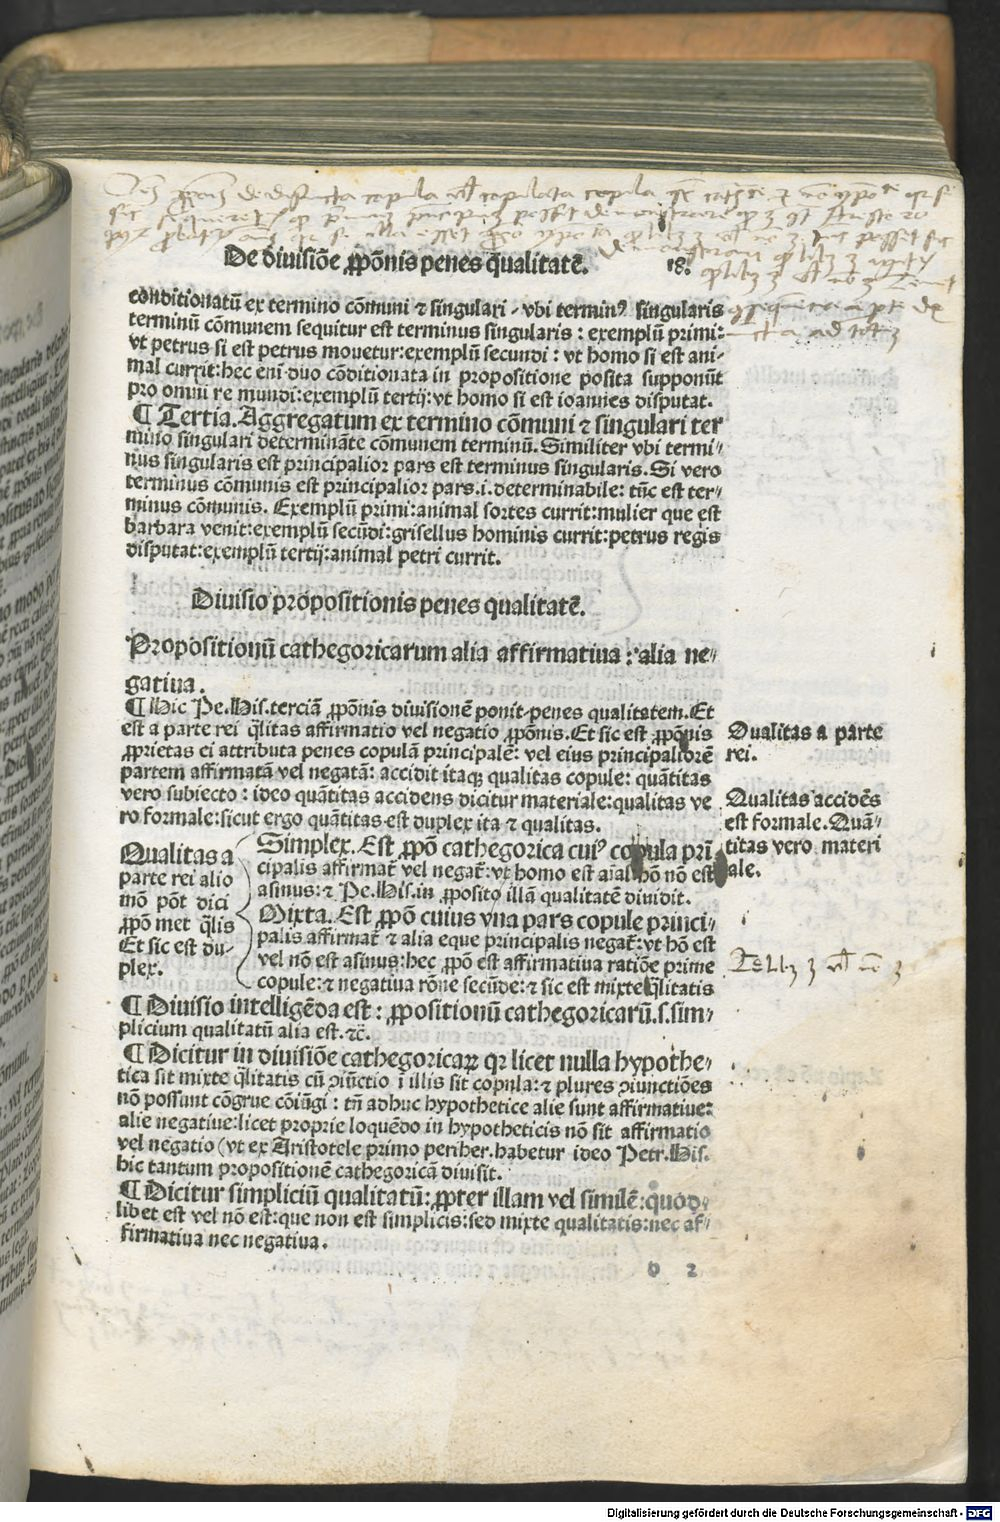 De diuisiõe ꝓpõnis penes q̃litatẽ.
18.
conditionatũ ex termino cõmuni ⁊ singulari, vbi terminꝰ singularis
terminũ cõmunem sequitur est terminus singularis: exemplũ primi:
vt petrus si est petrus mouetur:exemplũ secundi: vt homo si est ani-
mal currit:hec eni duo cõditionata in propositione posita supponũt
pro omni re mundi:exemplũ tertij:vt homo si est ioannes disputat.
¶ Tertia. Aggregatum ex termino cõmuni ⁊ singulari ter
mino singulari determinãte cõmunem terminũ. Similiter vbi termi-
nus singularis est principalior pars est terminus singularis. Si vero
terminus cõmunis est principalior pars.i.determinabile: tũc est ter-
minus cõmunis. Exemplũ primi:animal sortes currit:mulier que est
barbara venit:exemplũ secũdi:grisellus hominis currit:petrus regis
disputat:exemplũ tertij:animal petri currit.
Diuisio propositionis penes qualitatẽ.
Propositionũ cathegoricarum alia affirmatiua: alia ne-
gatiua.
¶ Hic Pe.His.terciã ꝓpõnis diuisionẽ ponit penes qualitatem. Et
est a parte rei q̃litas affirmatio vel negatio ꝓpõnis. Et sic est ꝓpõnis
ꝓprietas ei attributa penes copulã principalẽ: vel eius principaliorẽ
partem affirmatã vel negatã: accidit itaqꝫ qualitas copule: quãtitas
vero subiecto: ideo quãtitas accidens dicitur materiale:qualitas ve
ro formale:sicut ergo quãtitas est duplex ita ⁊ qualitas.
Qualitas a parte
rei.
Qualitas accidẽs
est formale. Quã-
titas vero materi
ale.
Qualitas a
parte rei alio
mõ põt dici
ꝓpõ met q̃lis
Et sic est du-
plex.
Simplex. Est ꝓpõ cathegorica cuiꝰ copula prĩ
cipalis affirmat̃ vel negat̃: vt homo est aĩal hõ nõ est
asinus: ⁊ Pe.His.in ꝓposito illã qualitatẽ diuidit.
Mixta. Est ꝓpõ cuius vna pars copule princi-
palis affirmat̃ ⁊ alia eque principalis negat̃: vt hõ est
vel nõ est asinus: hec ꝓpõ est affirmatiua ratiõe prime
copule: ⁊ negatiua rõne secũde: ⁊ sic est mixte q̃litatis
¶ Diuisio intelligẽda est: ꝓpositionũ cathegoricarũ.s.sim-
plicium qualitatũ alia est.⁊c̃.
¶ Dicitur in diuisiõe cathegoricaꝝ qꝛ licet nulla hypothe-
tica sit mixte q̃litatis cũ ꝯiũctio ĩ illis sit copula: ⁊ plures ꝯiunctiões
nõ possunt cõgrue cõiũgi: tñ adhuc hypothetice alie sunt affirmatiue:
alie negatiue:licet proprie loquẽdo in hypotheticis nõ sit affirmatio
vel negatio (vt ex Aristotele primo periher.habetur ideo Petr. His.
hic tantum propositionẽ cathegoricã diuisit.
¶ Dicitur simpliciũ qualitatũ: ꝓpter illam vel similẽ: quod-
libet est vel nõ est: que non est simplicis: sed mixte qualitatis: nec af-
firmatiua nec negatiua.
2
Digitalisierung gefördert durch die Deutsche Forschungsgemeinschaft - DFG